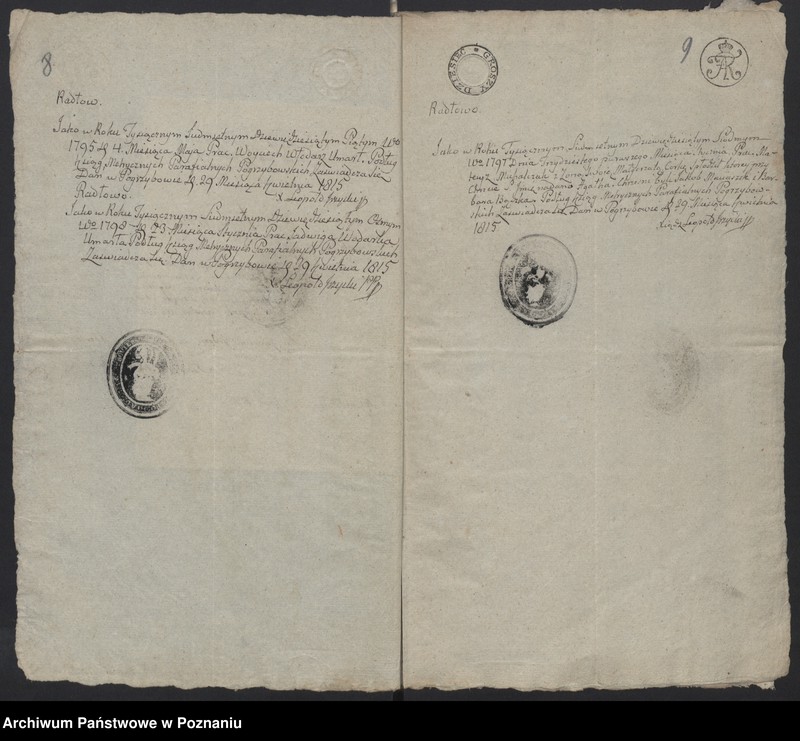 8
Radłow.
Jako w Roku Tysiącznym Siedmsetnym Dziewięćdziesiątym Piątym
1795 d. 4. Miesiąca Maja Prac. Woyciech Włodarz Umarł. Podług
Xsiąg Metrycznych Parafialnych Pogrzybowskich Zaświadcza się
Dan w Pogrzybowie d. 29. Miesiąca Kwietnia 1815
X. Leopold
Radłowo.
Jako w Roku Tysiącznym Siedmsetnym Dziewięćdziesiątym Osmym
1798 d. 23. Miesiąca Stycznia Prac. Jadwiga Włodarka
Umarła Podług Xsiąg Metrycznych Parafialnych Pogrzybowskich
Zaświadcza się Dan w Pogrzybowie d. 29 Kwietnia 1815
X. Leopold
9
DZIESIĘC GROSZY
Radłowo.
Jako w Roku Tysiącznym Siedmsetnym Dziewięćdziesiątym Siodmym
1797 Dnia Trzydziestego pierwszego Miesiąca Prac. Ma-
teusz Michalczak z Żoną Córkę którey przy
Chrzcie S. Imie nadano Chrzesni byli Jakob i Bar-
bara Podług Xsiąg Metrycznych Parafialnych Pogrzybow-
skich Zaświadcza się Dan w Pogrzybowie d. 29. Miesiąca Kwietnia
1815
Xiądz Leopold
Archiwum Państwowe w Poznaniu